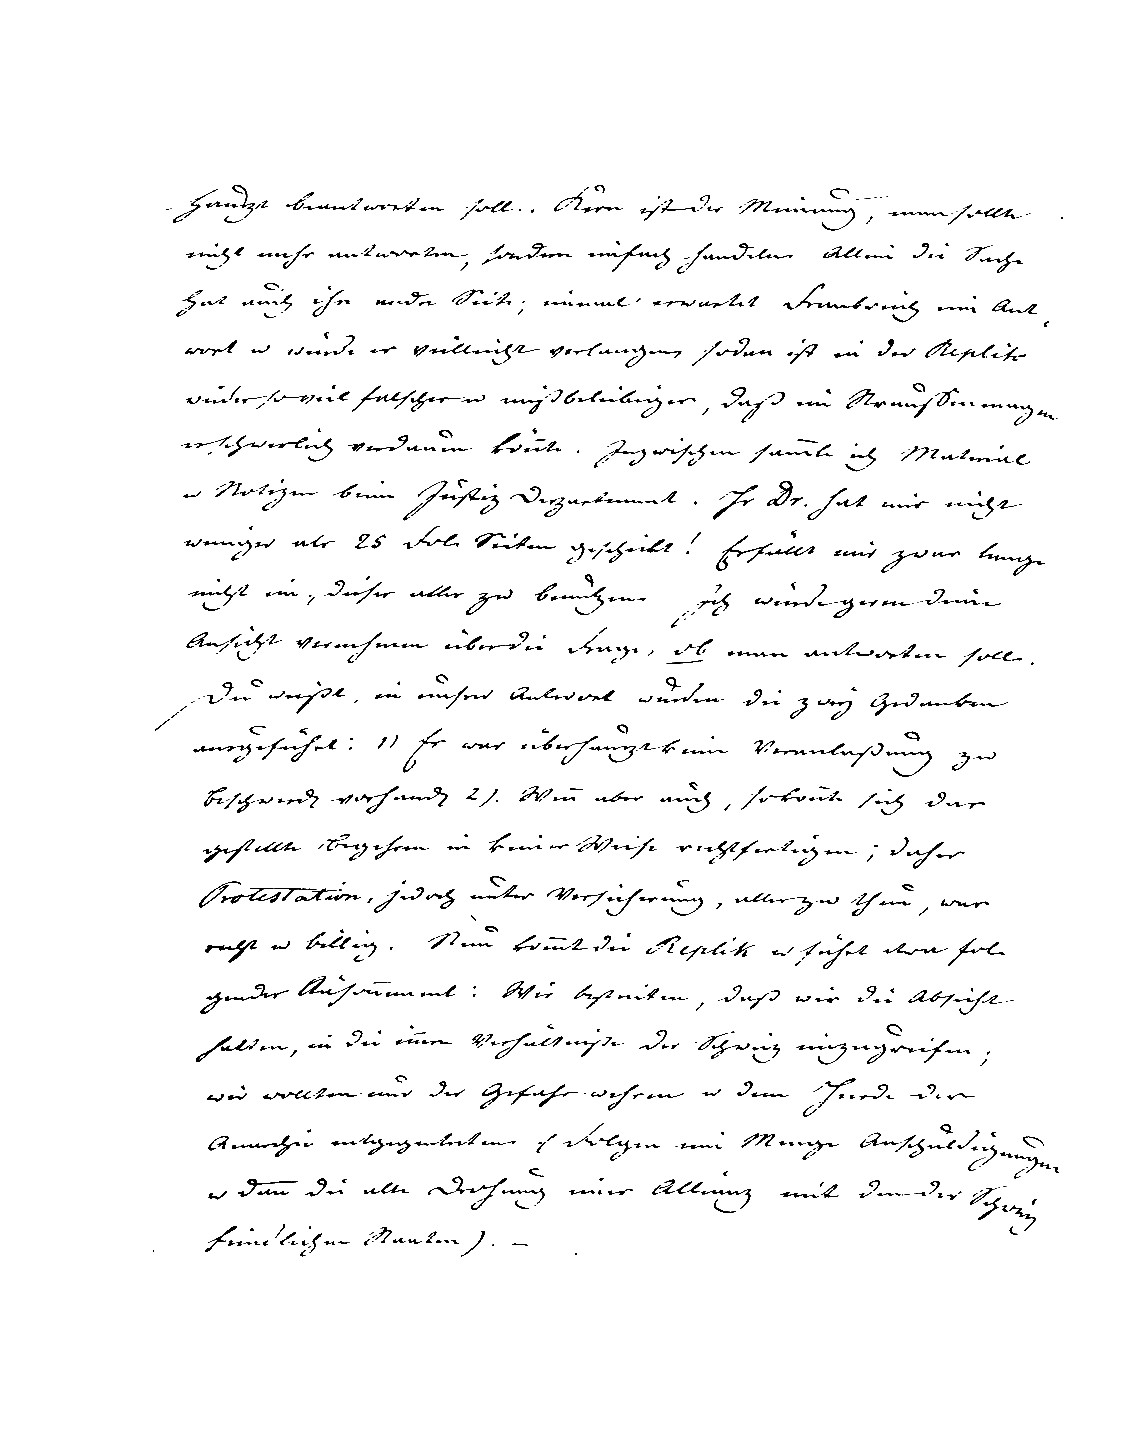 haupt beantworten soll. Kern ist der Meinung, man sollte
nicht mehr antworten, sondern einfach handeln. Allein die Sache
hat auch ihre andre Seite; einmal erwartet Frankreich eine Ant-
wort u würde es vielleicht verlangen, sodan ist in der Replik
wieder soviel falsches u mißbeliebiges, daß ein Straussenmagen
es schwerlich verdauen könnte. Inzwischen samle ich Material
u Notizen beim Justiz Departement. Ihr Dr. hat mir nicht
weniger als 25 Fol. Seiten geschickt! Es fällt mir zwar lange
nicht ein, dieses alles zu benützen. Ich würde gerne deine
Ansicht vernehmen über die Frage, ob man antworten soll.
Du weißt, in unsrer Antwort wurden die zwey Gedanken
ausgeführt: 1) Es war überhaupt keine Veranlaßung zu
Beschwerden vorhanden 2). Wenn aber auch, so konnte sich das
gestellte Begehren in keiner Weise rechtfertigen; daher
Protestation, jedoch unter Versicherung, alles zu thun, was
recht u billig. Nun komt die Replik u führt etwa fol-
gendes Räsonnement: Wir bestreiten, daß wir die Absicht
hatten, in die innern Verhältniße der Schweiz einzugreifen;
wir wollten nur der Gefahr wehren u dem Herde der
Anarchie entgegentreten (Folgen eine Menge Anschuldigungen
u dann die alte Drohung einer Allianz mit den der Schweiz
feindlichen Staaten). –